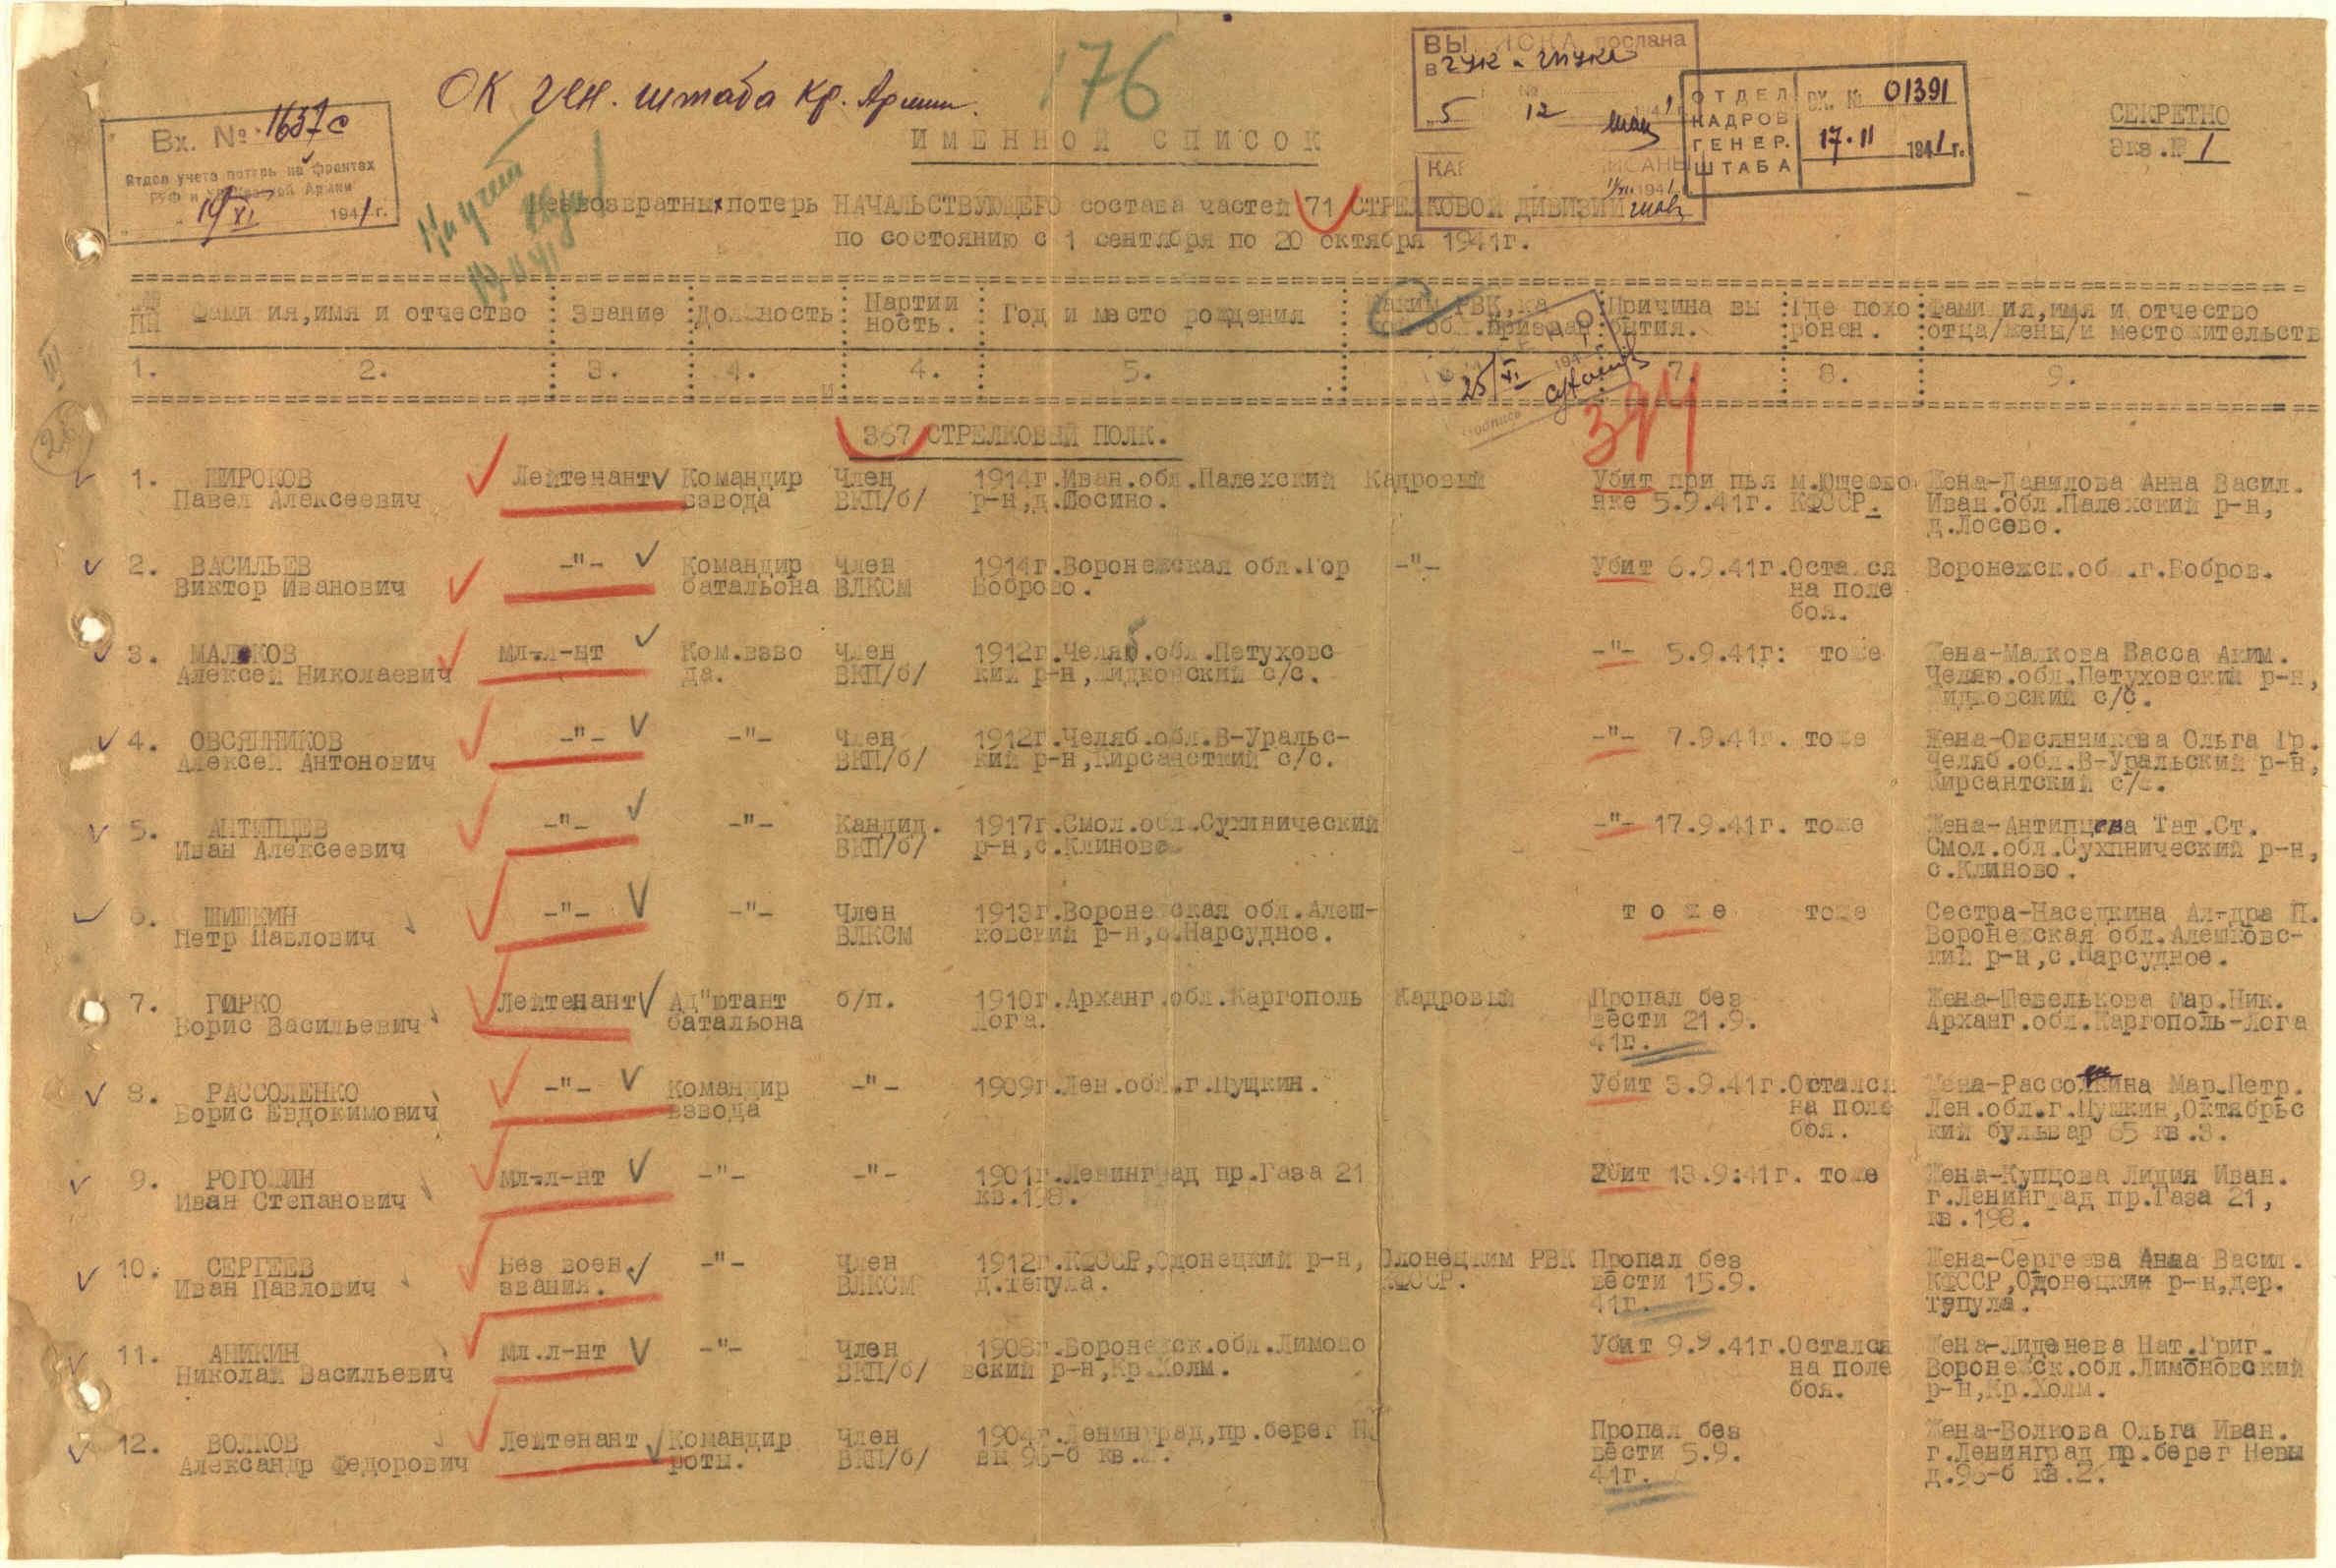 ОК ген. штаба Кр. Армии.
176
Вх. № 1637с
Отдел учета потерь на фронтах
19/XI 1941г.
ВЫПИСКА послана
в ГУК и
5 12 1941
ОТДЕЛ КАДРОВ ГЕНЕР. ШТАБА
ВХ. № 01391
17.11 1941г.
СЕКРЕТНО
Экз.№ 1
ИМЕННОЙ СПИСОК
безвозвратных потерь НАЧАЛЬСТВУЮЩЕГО состава частей 71 СТРЕЛКОВОЙ ДИВИЗИИ
по состоянию с 1 сентября по 20 октября 1941г.
№№ пп Фамилия,имя и отчество Звание Должность Партийность. Год и место рождения Каким РВК,ка обл.призван Причина выбытия. Где похоронен. Фамилия,имя и отчество отца/жены/и местожительств
1. 2. 3. 4. 4. 5. 7. 8. 9.
25/XI
394
26
367 СТРЕЛКОВЫЙ ПОЛК.
1. ШИРОКОВ Лейтенант Командир Член 1914г.Иван.обл.Палехский Кадровый Убит при пья м.Юшеево Жена-Данилова Анна Васил.
Павел Алексеевич взвода ВКП/б/ р-н,д.Лосино. нке 5.9.41г. КФССР. Иван.обл.Палехский р-н,
д.Лосево.
2. ВАСИЛЬЕВ -"- Командир Член 1914г.Воронежская обл.Гор -"- Убит 6.9.41г.Остался Воронежск.обл.г.Бобров.
Виктор Иванович батальона ВЛКСМ Боброво. на поле
боя.
3. МАЛКОВ Мл-л-нт Ком.взво Член 1912г.Челяб.обл.Петуховс -"- 5.9.41г: тоже Жена-Малкова Васса Аким.
Алексей Николаевич да. ВКП/б/ кий р-н,Жидковский с/с. Челяю.обл.Петуховский р-н,
Жидковский с/с.
4. ОВСЯННИКОВ -"- -"- Член 1912г.Челяб.обл.В-Уральс- -"- 7.9.41г. тоже Жена-Овсянникова Ольга Гр.
Алексей Антонович ВКП/б/ кий р-н,Кирсансткий с/с. Челяб.обл.В-Уральский р-н,
Кирсантский с/с.
5. АНТИПЦЕВ -"- -"- Кандид. 1917г.Смол.обл.Сухинический -"- 17.9.41г. тоже Жена-Антипцева Тат.Ст.
Иван Алексеевич ВКП/б/ р-н,с.Клиново. Смол.обл.Сухинический р-н,
с.Клиново.
6. ШИШКИН -"- -"- Член 1913г.Воронежская обл.Алеш- тоже тоже Сестра-Наседкина Ал-дра П.
Петр Павлович ВЛКСМ ковский р-н,с.Нарсудное. Воронежская обл.Алешковс-
кий р-н,с.Нарсудное.
7. ГИРКО Лейтенант Ад"ютант б/п. 1910г.Арханг.обл.Каргополь Кадровый Пропал без Жена-Шевелькова Мар.Ник.
Борис Васильевич батальона Лога. вести 21.9. Арханг.обл.Каргополь-Лога
41г.
8. РАССОЛЕНКО -"- Командир -"- 1909г.Лен.обл.г.Пущкин. Убит 3.9.41г.Остался Жена-Рассолкина Мар.Петр.
Борис Евдокимович взвода на поле Лен.обл.г.Пушкин,Октябрьс
боя. кий бульвар 65 кв.3.
9. РОГОЖИН Мл-л-нт -"- -"- 1901г.Ленинград пр.Газа 21 Убит 13.9:41г. тоже Жена-Купцова Лидия Иван.
Иван Степанович кв.198. г.Ленинград пр.Газа 21,
кв.198.
10. СЕРГЕЕВ Без воен. -"- Член 1912г.КФССР,Олонецкий р-н, Олонецким РВК Пропал без Жена-Сергеева Анна Васил.
Иван Павлович звания. ВЛКСМ д.тепула. КФССР. вести 15.9. КФССР,Олонецкий р-н,дер.
41г. тэпула.
11. АНИКИН Мл.л-нт -"- Член 1908г.Воронежск.обл.Лимово Убит 9.9.41г.Остался Жена-Лиденева Нат.Григ.
Николай Васильевич ВКП/б/ вский р-н,Кр.Холм. на поле Воронежск.обл.Лимоновский
боя. р-н,Кр.Холм.
12. ВОЛКОВ Лейтенант Командир Член 1904г.Ленинград,пр.берег Не Пропал без Жена-Волкова Ольга Иван.
Александр Федорович роты. ВКП/б/ вы 96-б кв.2. вести 5.9. г.Ленинград пр.берег Невы
41г. д.96-б кв.2.